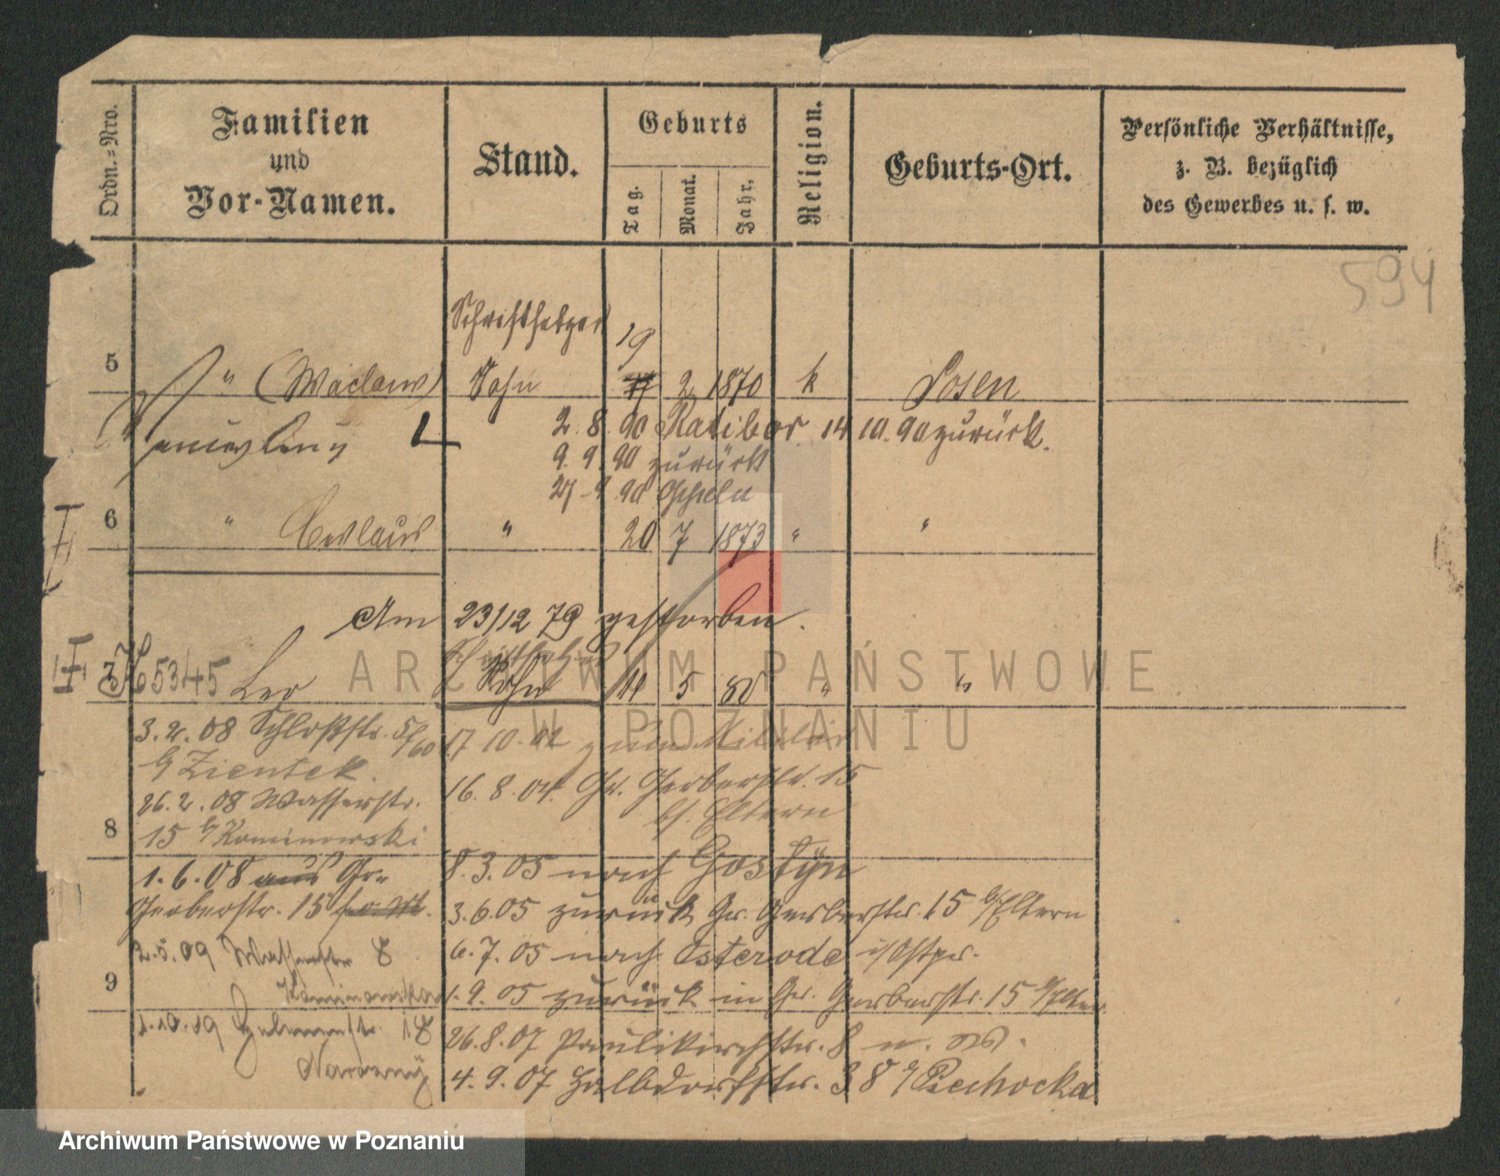 Ordn.=Nro.
Familien
und
Vor-Namen.
Stand.
Geburts
Tag.
Monat.
Jahr.
Religion.
Geburts-Ort.
Persönliche Verhältnisse,
z. B. bezüglich
des Gewerbes u. s. w.
594
Schriftsetzer
19
5 " (Waclaw) Sohn 2 1870 k Posen
2. 8. 90 Ratibor 14 10. 90 zurück.
9. 9. 90 zurück
27 9 90
6 " " 20 7 1873 " "
Am 23/12 79 gestorben.
7 5345 Leo Sohn 11 5 80 " "
3.2.08 Schloßstr. 5
b/ Zientek.
26.2.08 Wasserstr.
15 b/ Kaminowski
8
1.6.08 aus Gr.
Gerberstr. 15
2.5.09 Wasserstr 8
9
1.10.09 18
17 10. 02 zum Militär
16. 8. 04. Gr. Gerberstr. 15
b/. Eltern
8. 3. 05 nach Gostyn
3. 6. 05 zurück Gr. Gerberstr. 15 b/Eltern
6. 7. 05 nach Osterode i/Ostpr.
1. 9. 05 zurück in Gr. Gerberstr. 15 b/Eltern
26. 8. 07 Paulikirchstr. 8
4. 9. 07 Halbdorfstr. 38 b/ Piechocka
ARCHIWUM PAŃSTWOWE
W POZNANIU
Archiwum Państwowe w Poznaniu